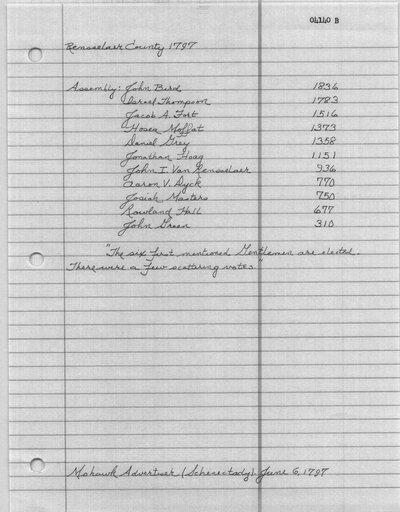 04140 B
Rensselaer County 1797
Assembly: John Bird 1836
Israel Thompson 1783
Jacob A. Fort 1516
Hosea Moffat 1373
Daniel Gray 1358
Jonathan Hoag 1151
John I. Van Rensselaer 936
Aaron V. Dyck 770
Josiah Masters 750
Rowland Hall 677
John Green 310
"The six first mentioned Gentlemen are elected.
There were a few scattering votes."
Mohawk Advertiser (Schenectady). June 6, 1797